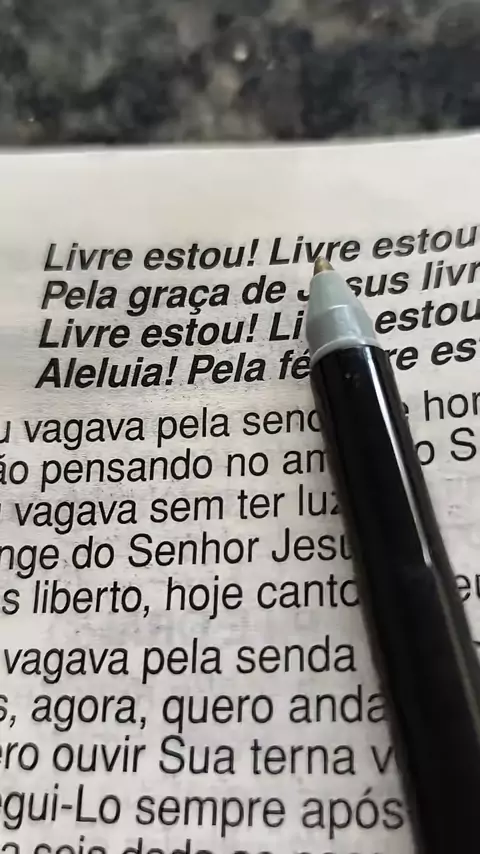 Livre estou! Livre estou
Pela graça de Jesus livr
Livre estou! Li estou
Aleluia! Pela fé re es
u vagava pela send hor
ão pensando no am o S
vagava sem ter luz
nge do Senhor Jesu
s liberto, hoje canto eu
vagava pela senda
s, agora, quero anda
ro ouvir Sua terna v
gui-Lo sempre após